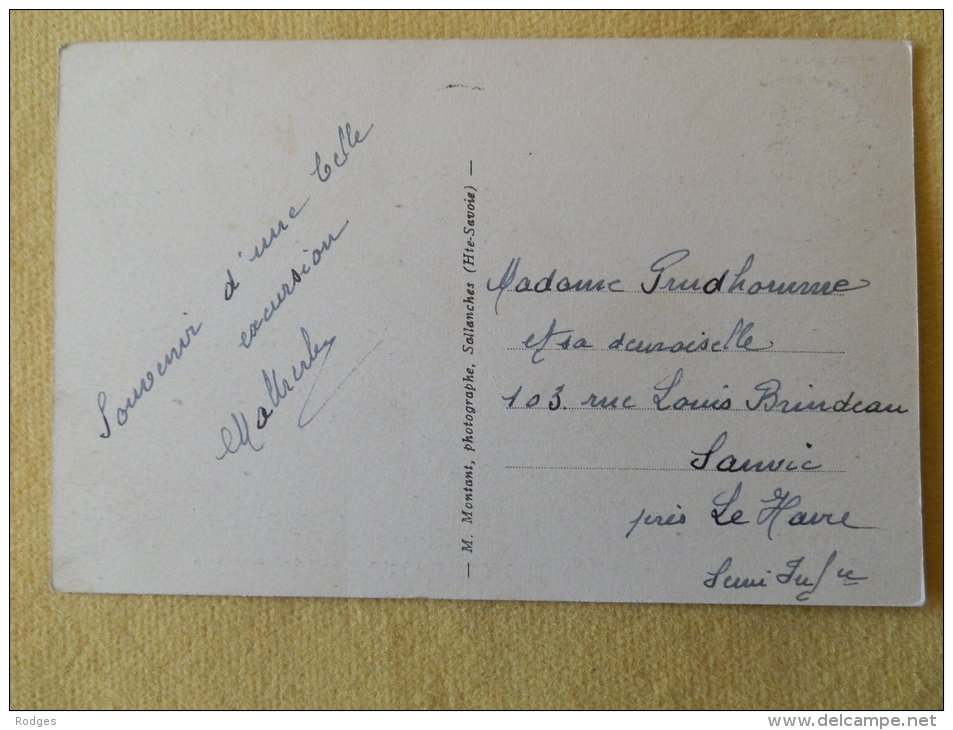 Souvenir
d'une belle
excursion
— M. Montant, photographe, Sallanches (Hte-Savoie) —
Madame Prudhomme
et sa demoiselle
103. rue Louis Brindeau
Sanvic
près Le Havre
Seine Infre
Rodges
www.delcampe.net